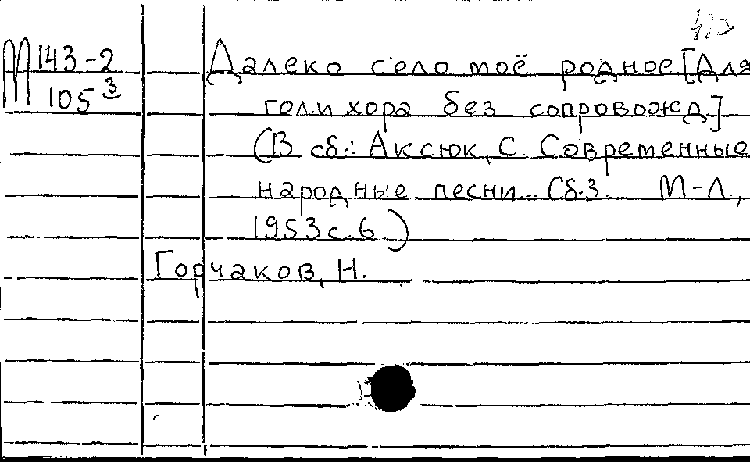 М 143-2
105³
Далеко село моё родное [Для
голи хора без сопровожд.]
(В сб.: Аксюк, С. Современные
народные песни. Сб.3. М-Л,
1953 с. 6.)
Горчаков, Н.